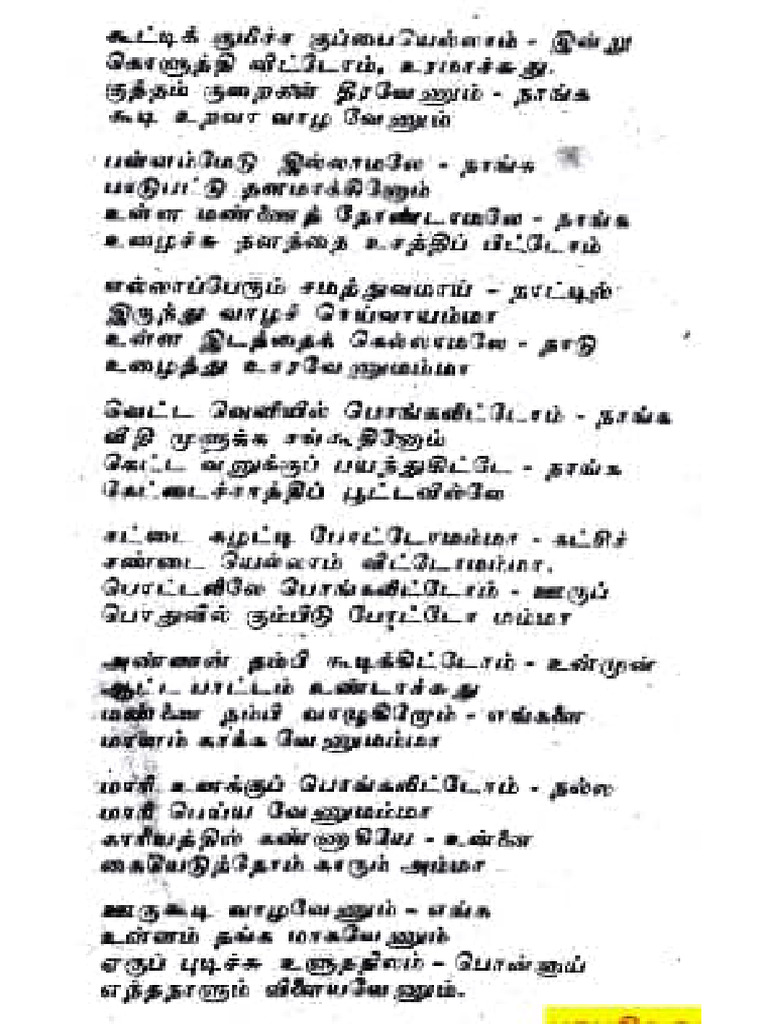 கூட்டிக் குமிச்ச குப்பையெல்லாம் - இன்று
கொளுத்தி விட்டோம், உரமாச்சுது.
குத்தம் குறைகள் தீரவேணும் - நாங்க
கூடி உறவா வாழ வேணும்
பள்ளம்மேடு இல்லாமலே - நாங்க
பாடுபட்டு தளமாக்கினோம்
உள்ள மண்ணைத் தோண்டாமலே - நாங்க
உழைச்சு நிலத்தை உசத்திப் பிட்டோம்
எல்லாப்பேரும் சமத்துவமாய் - நாட்டில்
இருந்து வாழச் செய்வாயம்மா
உள்ள இடத்தைக் கெல்லாமலே - நாடு
உழைத்து உாரவேணுமம்மா
வெட்ட வெளியில் பொங்கலிட்டோம் - நாங்க
வீதி முளுக்க சங்கூதினோம்
கெட்ட வனுக்குப் பயந்துகிட்டே - நாங்க
கேட்டைச்சாத்திப் பூட்டவில்லே
சட்டை கழட்டி போட்டோமம்மா - கட்சிச்
சண்டை யெல்லாம் விட்டோமம்மா.
பொட்டலிலே பொங்கலிட்டோம் - ஊருப்
பொதுவில் கும்பிடு போட்டோ மம்மா
அண்ணன் தம்பி கூடிக்கிட்டோம் - உன்முன்
ஆட்ட பாட்டம் உண்டாச்சுது
மண்ணை நம்பி வாழுகிறோம் - எங்களை
மானம் காக்க வேணுமம்மா
மாரி உனக்குப் பொங்கலிட்டோம் - நல்ல
மாரி பெய்ய வேணுமம்மா
காரியத்தில் கண்ணாகியே - உன்னை
கையெடுத்தோம் காரும் அம்மா
ஊருகூடி வாழவேணும் - எங்க
உள்ளம் தங்க மாகவேணும்
ஏருப் புடிச்சு உளுததிலம் - பொன்னாய்
எந்தநாளும் விளையவேணும்.